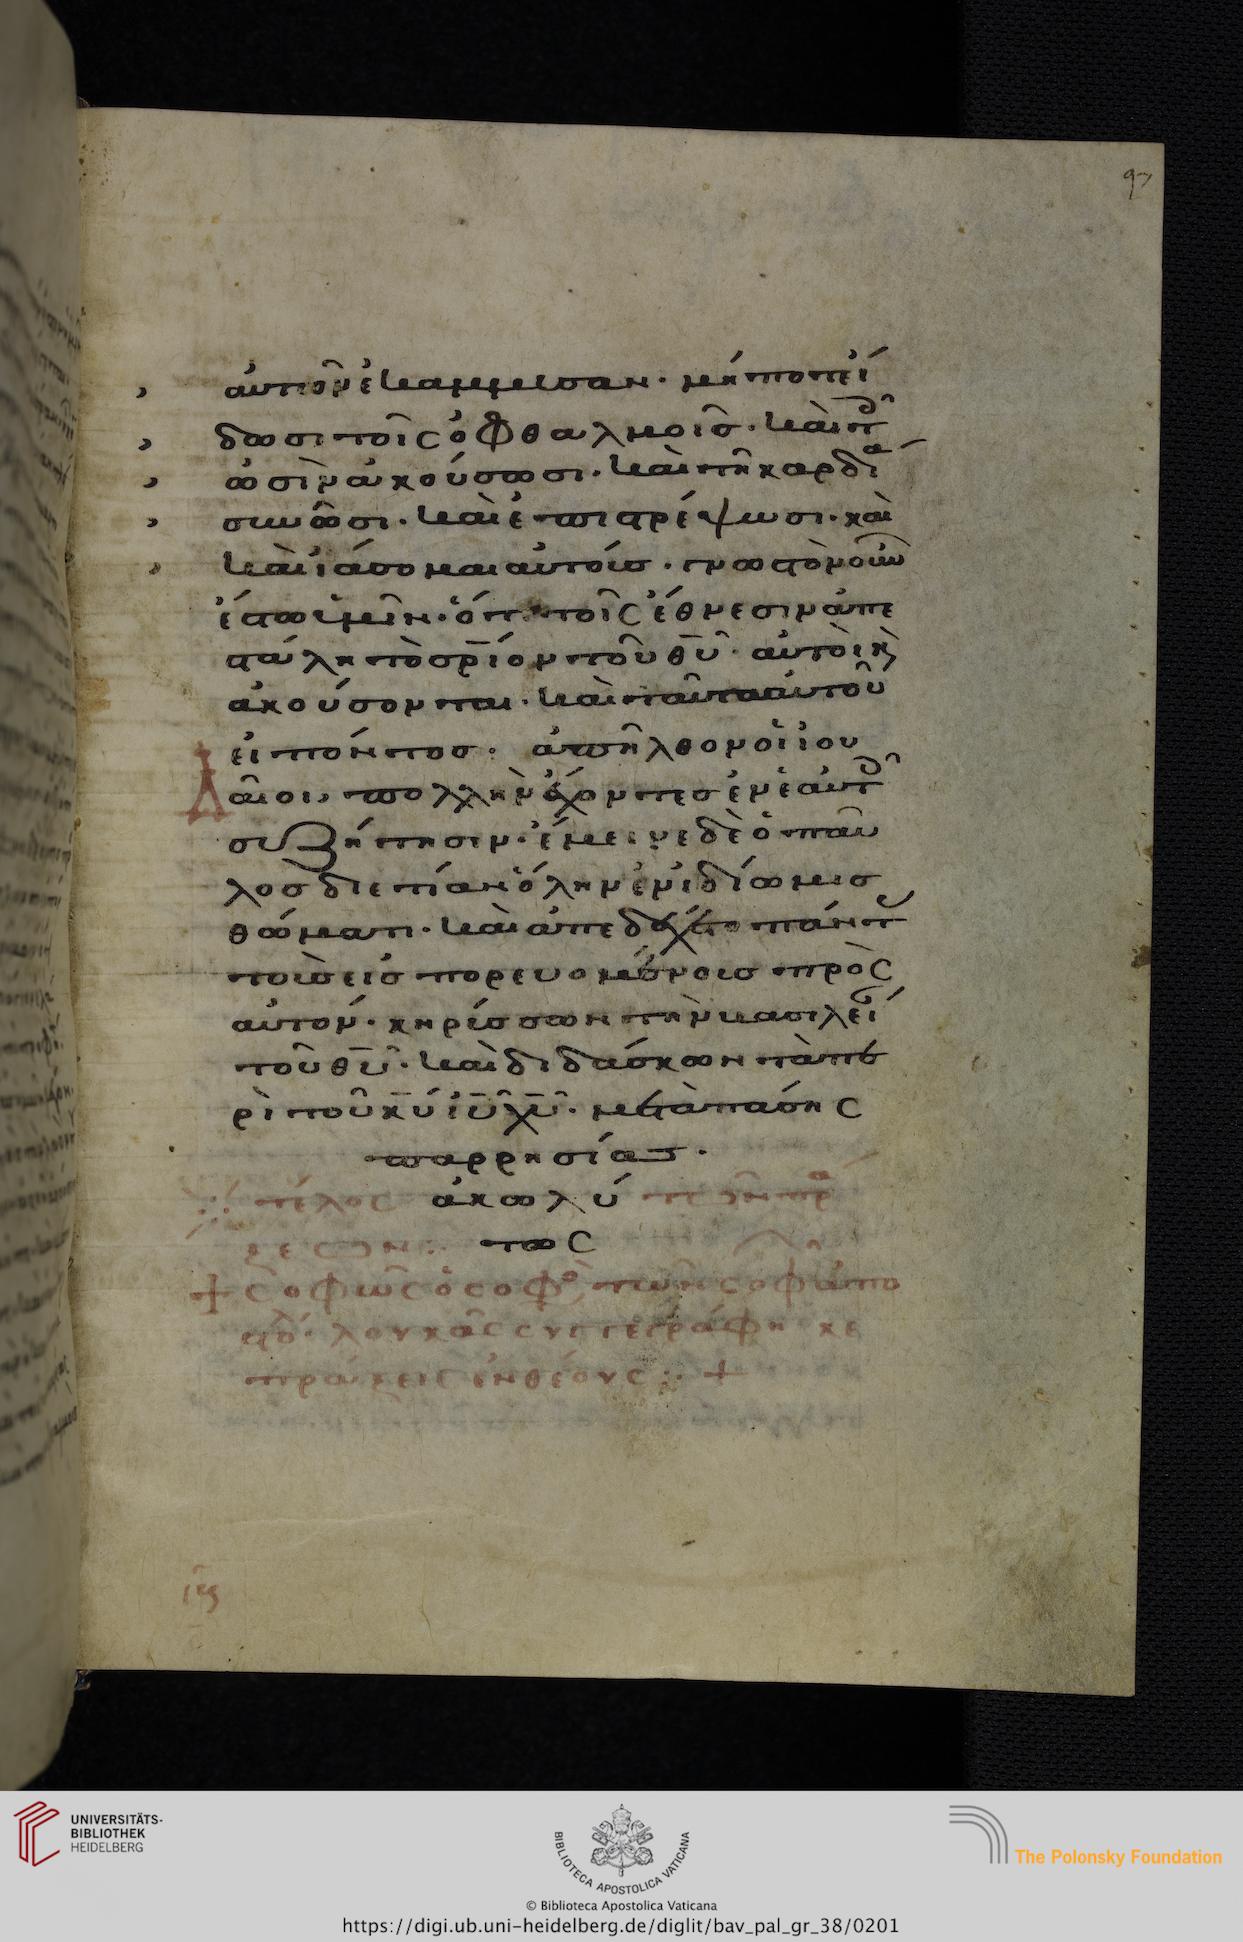 97
αὐτῶν ἐκάμμυσαν· μήποτε ἴ
δωσι τοῖς ὀφθαλμοῖς· καὶ τοῖς
ὠσὶν ἀκούσωσι· καὶ τῇ καρδία
συνῶσι· καὶ ἐπιστρέψωσι· καὶ
καὶ ἰάσομαι αὐτούς· γνωστὸν οὖν
ἔστω ὑμῖν· ὅτι τοῖς ἔθνεσιν ἀπε
στάλη τὸ σρ̅ίον τοῦ θυ̅· αὐτοὶ κ
ἀκούσονται· καὶ ταῦτα αὐτοῦ
εἰπόντος· ἀπῆλθον οἱ ἰου
δαῖοι, πολλὴν ἔχοντες ἐν ἑαυτοῖς
συζήτησιν· ἔμεινε δὲ ὁ παῦ
λος διετίαν ὅλην ἐν ἰδίω μισ
θώματι· καὶ ἀπεδέχετο πάντας
τοὺς εἰσπορευομένους πρὸς
αὐτόν· κηρύσσων τὴν βασιλείαν
τοῦ θυ̅· καὶ διδάσκων τὰ πε
ρὶ τοῦ κυ̅ ιυ̅ χυ̅· μετὰ πάσης
παρρησίας·
τέλος ἀκωλύ τῶν πρά
ξεων: τως
+ σοφῶς ὁ σοφὸς τῶν σοφῶν ἀπο
στόλων· λουκᾶς συγγεγράφηκε
πράξεις ἐνθέους :· +
UNIVERSITÄTS-
BIBLIOTHEK
HEIDELBERG
BIBLIOTECA APOSTOLICA VATICANA
The Polonsky Foundation
© Biblioteca Apostolica Vaticana
https://digi.ub.uni-heidelberg.de/diglit/bav_pal_gr_38/0201